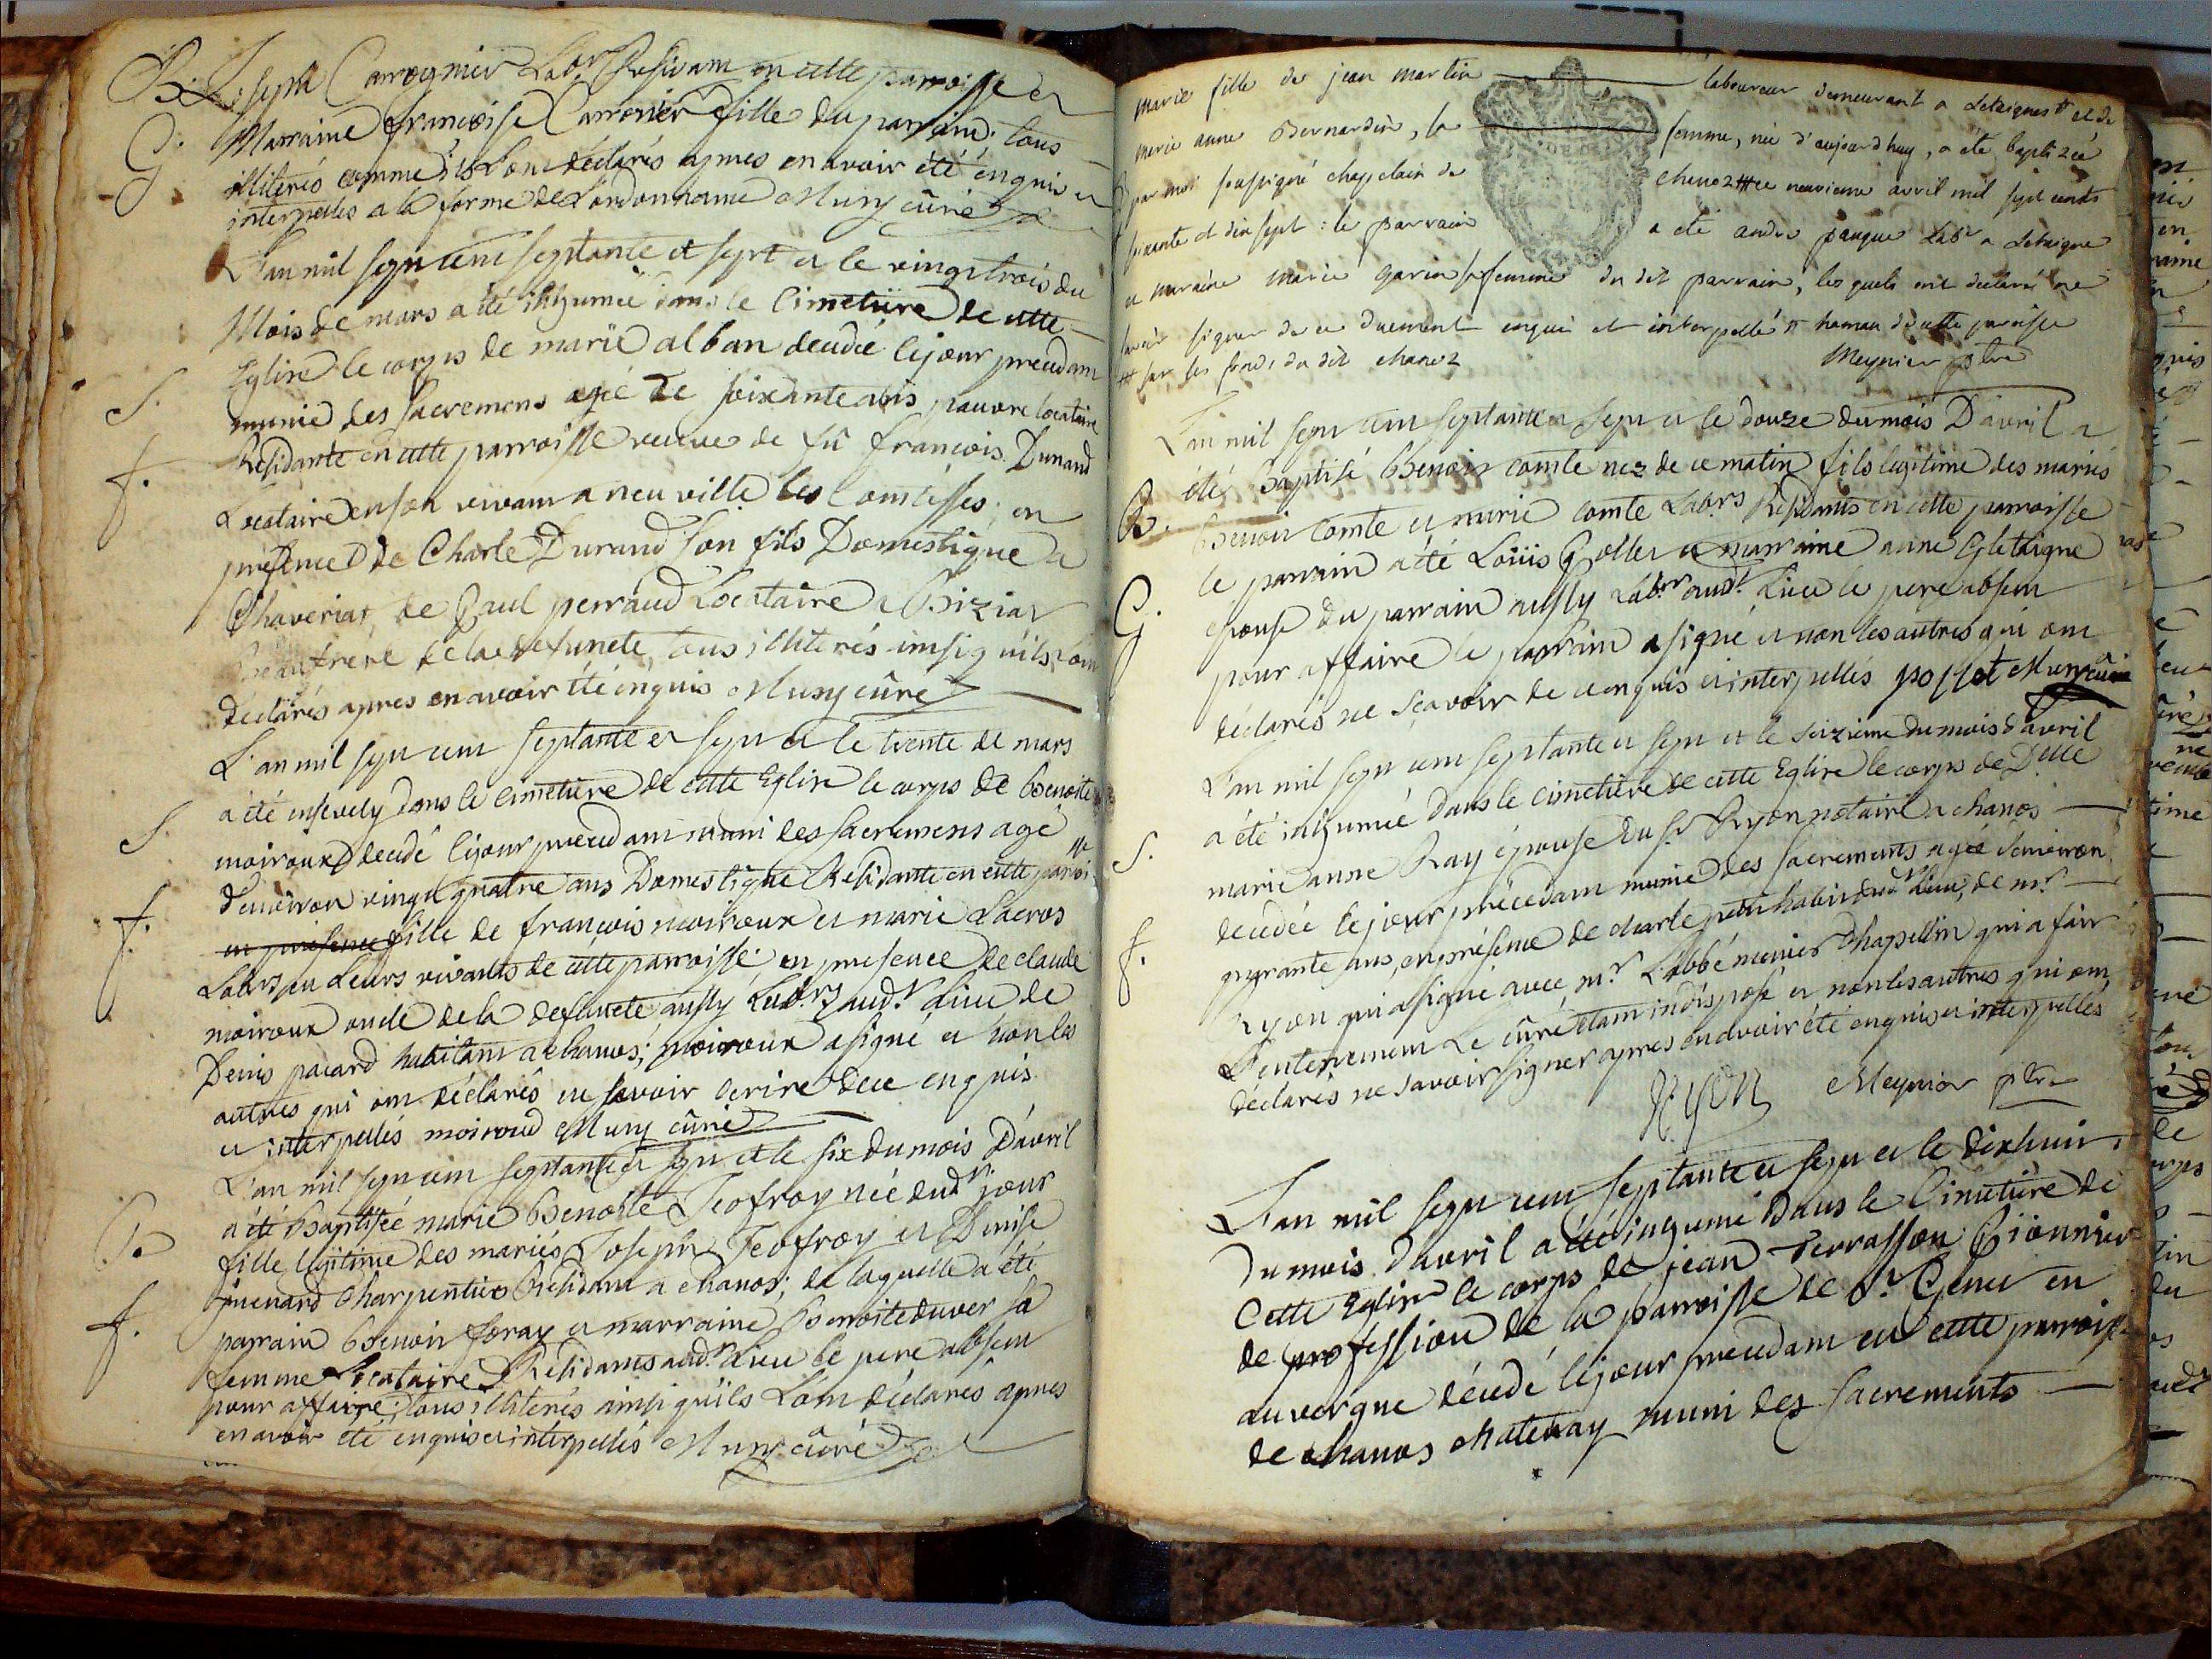 B. Joseph Carrognier Labr Residam en cette parroisse et
G. Marraine francoise Carronier fille du parrain; tous
illiterés comme ils L'ont déclarés apres en avoir été enquis et
interpellés a la forme de L'ordonnance Muny cûré
L'an mil sept cent septante et sept et le vingt trois du
Mois de mars a été inhumée dans le Cimetiere de cette
Eglise le corps de marie alban decedée le jour precedam
S. munie des sacremens agée de soixante ans pauvre locataire
Residante en cette parroisse veuve de fû francois Durand
f. Locataire en son vivant a neuville les Comtesses; en
presence de Charle Durand son fils Domestique a
Chaveriat, de Paul perraud Locataire a Biziat
Beaufrere de la defuncte, tous illiterés insi quils l'on
declarés apres en avoir été enquis Muny cûré
L'an mil sept cent septante et sept et le trente de mars
a été ensevely dans le cimetiere de cette Eglise le corps de Benoite
S. moiroux decedé le jour precedam muni des sacremens agé
d'environ vingt quatre ans Domestique Residante en cette parroi
f. en presence fille de françois moiroux et marie Lacros
Labrs en Leurs vivants de cette parroisse, en presence de claude
moiroux oncle de la defuncte, aussy Labrs audt Lieu de
Denis pacard habitant a chanos; moiroux a signé et non les
autres qui ont déclarés ne savoir écrire de ce enquis
et interpellés moiroud Muny cûré
L'an mil sept cent septante et sept et le six du mois D'avril
B. a été Baptisée marie Benoite Jeofroy née dudt jour
fille legitime des mariés Joseph Jeofroy et Denise
quenard Charpentier Residant a chanos; de laquelle a été
f. parrain Benoir foray et marraine Benoite duver sa
femme Locataire Residants audt Lieu le pere absent
pour affaire; tous illiterés ainsi qu'ils L'ont déclarés apres
en avoir été enquis et interpellés Muny cûré
marie fille de jean martin laboureur demeurant a Letaigne # et de
marie anne Bernardin, sa femme, née d'aujourd'huy, a été baptizée
par moi soussigné chappelain de chenoz ## ce neuvieme avril mil sept cents
soixante et dix sept: le parrain a été andre pauque Labr a Letaigne
et maraine marie garin sa femme du dit parrain, les quels ont declaré ne
savoir signer de ce duement enquis et interpellé # hameau de cette paroisse
## sur les fonds du dit chanoz Meynier ptre
L'an mil sept cent septante et sept et le douze du mois D'avril a
été Baptisé Benoir comte nez de ce matin fils legitime des mariés
B. Benoir comte et marie comte Labrs Residants en cette parroisse
le parrain a été Loüis Gollet et marraine anne Gletaigne
G. épouse du parrain aussy Labr audt Lieu le pere absent
pour affaire le parrain a signé et non les autres qui ont
déclarés ne sçavoir de ce enquis et interpellés possot Muny cûré
L'an mil sept cent septante et sept et le seizieme du mois d'avril
a été inhumée dans le cimetiere de cette Eglise le corps de Delle
S. marie anne Ray épouse du Sr Ryon notaire a chanos
decedée le jour précedam munie des sacrements agée denviron
f. quarante ans, en présence de charle petit habit audt Lieu, de mr
Ryon qui a signé avec mr L'abbé meinier Chapellin qui a fair
L'enterrement Le cûré étant indisposé et non les autres qui ont
déclarés ne savoir signer apres en avoir été enquis et interpellés
Ryon Meynier ptre
L'an mil sept cent septante et sept et le dixhuir
du mois d'avril a été inhumé Dans le Cimetiere de
Cette Eglise le corps de jean Terrasson Pionnier
de profession de la parroisse de St Genet en
auvergne décédé le jour precedam en cette parroisse
de chanos chatenay muni des sacrements